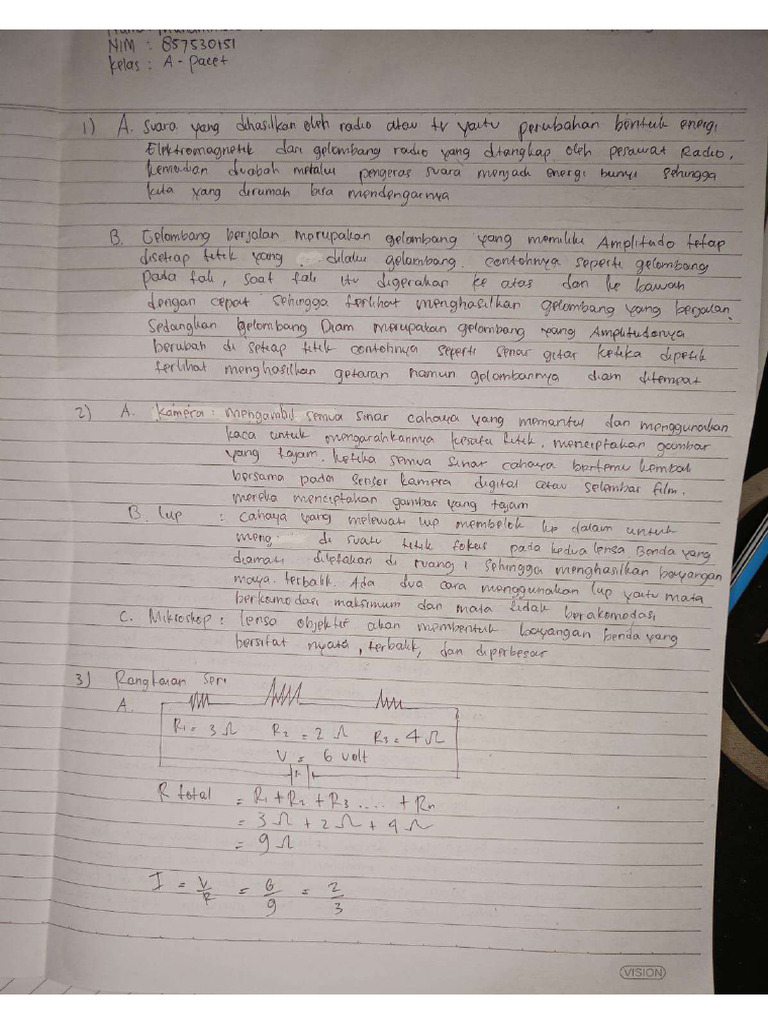 NIM : 857530151
Kelas : A - Pacet
1) A. Suara yang dihasilkan oleh radio atau tv yaitu perubahan bentuk energi
Elektromagnetik dari gelombang radio yang ditangkap oleh pesawat Radio,
kemudian diubah melalui pengeras suara menjadi energi bunyi sehingga
kita yang dirumah bisa mendengarnya
B. Gelombang berjalan merupakan gelombang yang memiliki Amplitudo tetap
disetiap titik yang dilalui gelombang. contohnya seperti gelombang
pada tali, saat tali itu digerakan ke atas dan ke bawah
dengan cepat sehingga terlihat menghasilkan gelombang yang berjalan.
Sedangkan gelombang Diam merupakan gelombang yang Amplitudonya
berubah di setiap titik contohnya seperti senar gitar ketika dipetik
terlihat menghasilkan getaran namun gelombannya diam ditempat
2) A. Kamera : mengambil semua sinar cahaya yang memantul dan menggunakan
kaca untuk mengarahkannya kesatu titik, menciptakan gambar
yang tajam. ketika semua sinar cahaya bertemu kembali
bersama pada sensor kamera digital atau selembar film,
mereka menciptakan gambar yang tajam
B. Lup : Cahaya yang melewati lup membelok ke dalam untuk
meng di suatu titik fokus pada kedua lensa Benda yang
diamati diletakan di ruang 1 sehingga menghasilkan bayangan
maya. terbalik. Ada dua cara menggunakan lup yaitu mata
berkomodasi maksimum dan mata tidak berakomodasi
C. Mikroskop : lensa objektif akan membentuk bayangan benda yang
bersifat nyata, terbalik, dan diperbesar
3) Rangkaian Seri
A.
R1 = 3 Ω R2 = 2 Ω R3 = 4 Ω
V = 6 volt
R total = R1 + R2 + R3 .... + Rn
= 3 Ω + 2 Ω + 4 Ω
= 9 Ω
I = V/R = 6/9 = 2/3
VISION